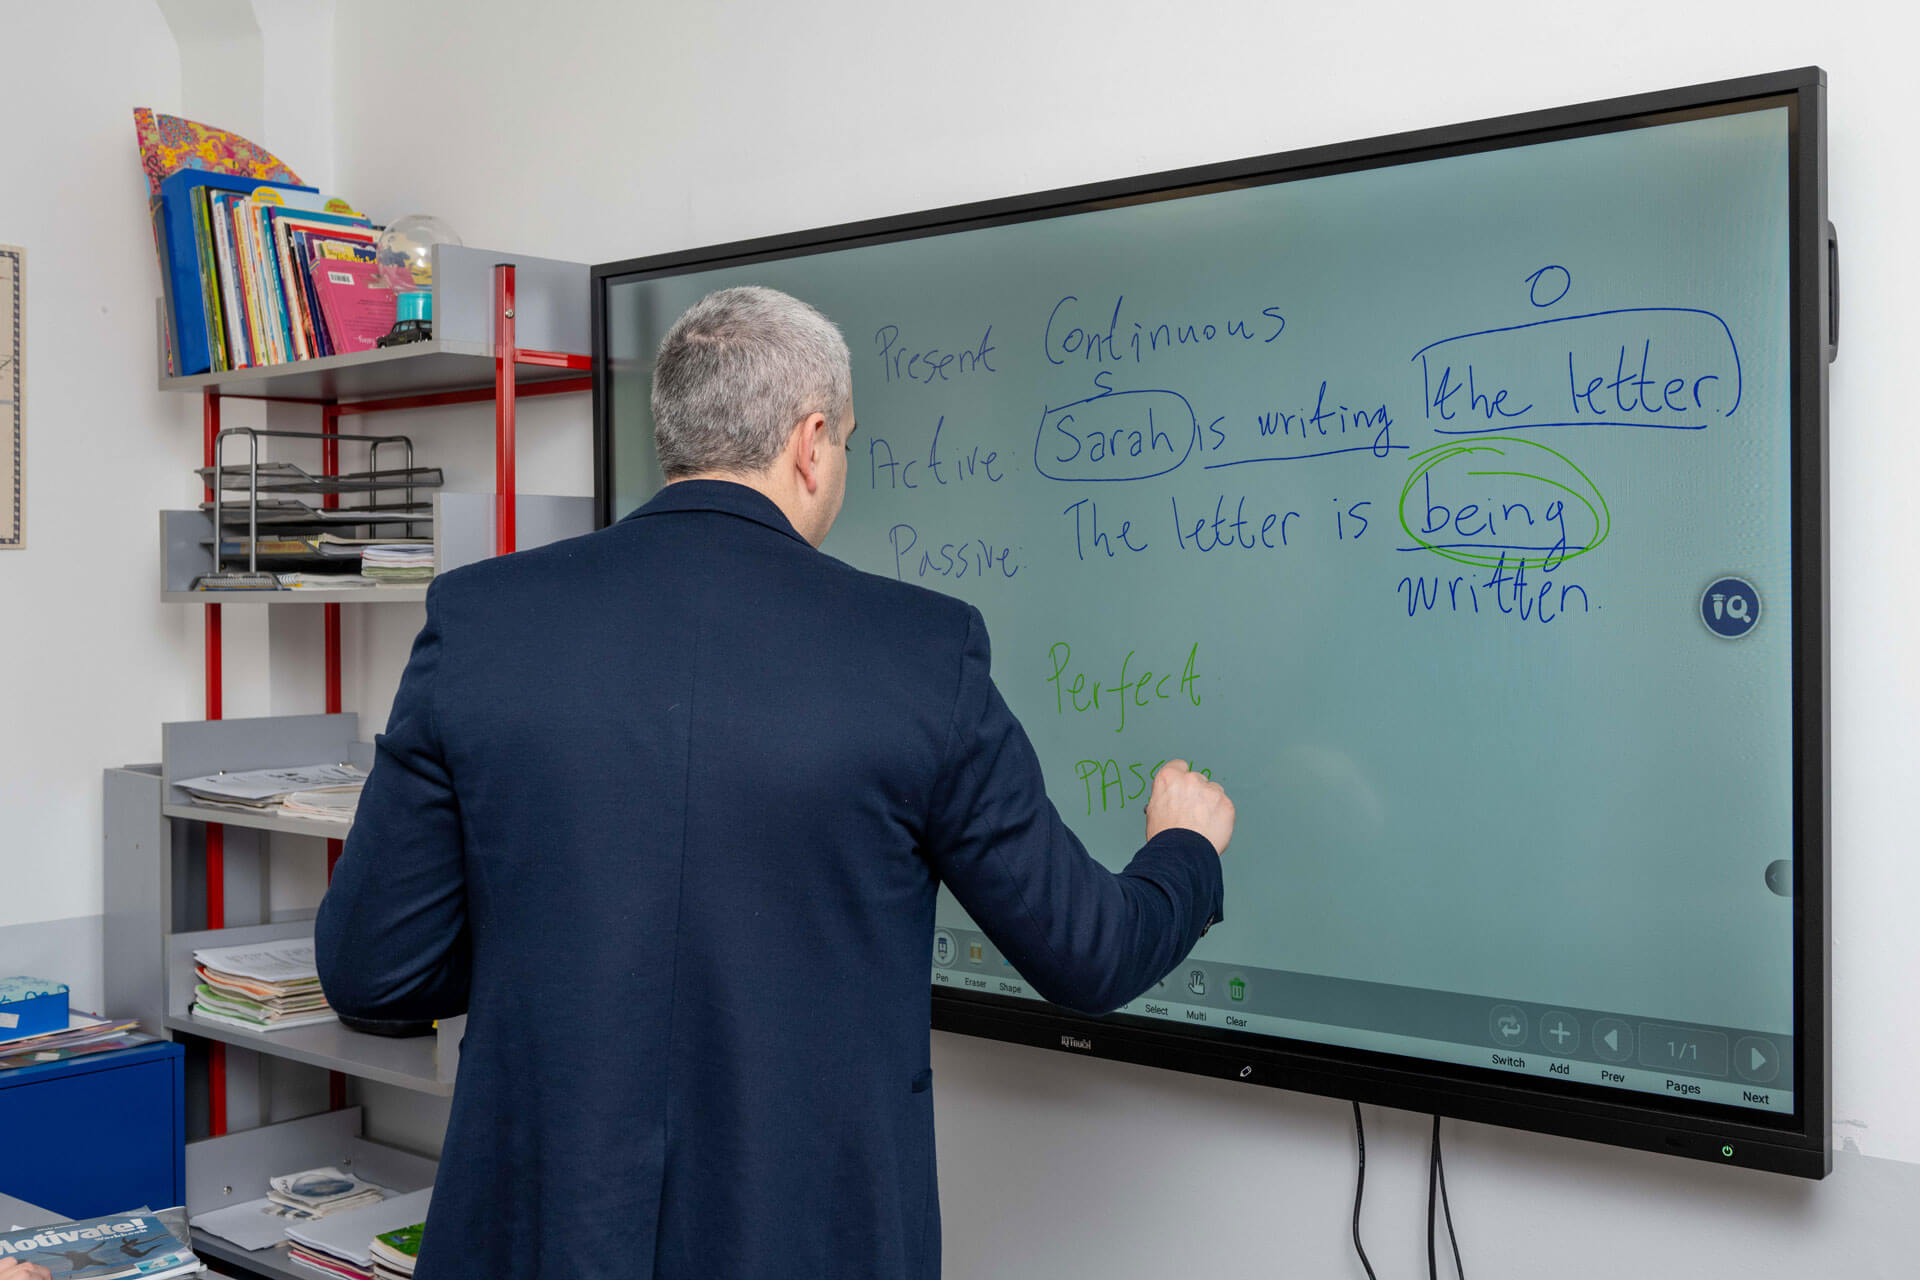 O
Present Continuous
S
Active: Sarah is writing the letter.
Passive: The letter is being
written.
Perfect
IQ
Pen Eraser Shape Select Multi Clear
Switch Add Prev 1/1 Pages Next
IQTouch
Motivate!
Workbook
4